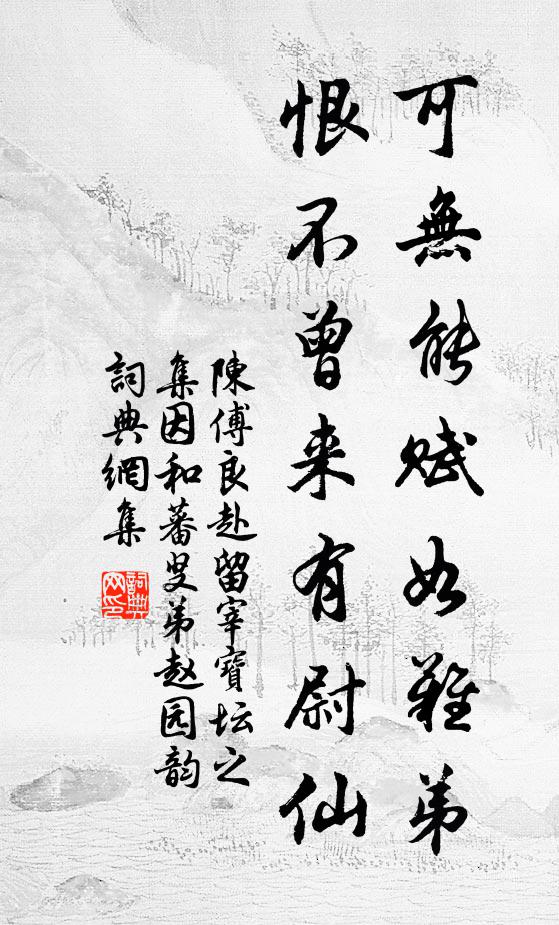 可無能賦如難弟
恨不曾来有尉仙
陳傅良赴留宰寶坛之
集因和蕃叟弟赵园韵
詞典網集
詞典网印